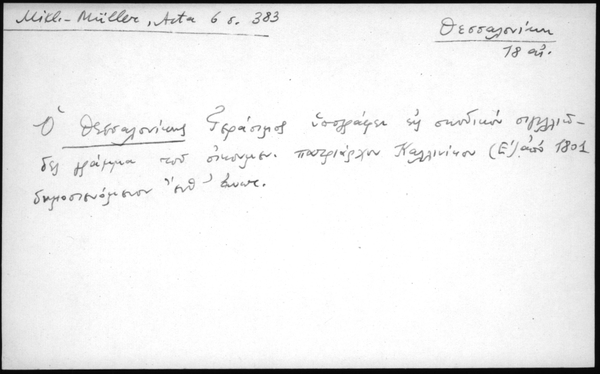 Mikl.-Müller, Acta 6 σ. 383
Θεσσαλονίκη
18 αἰ.
Ὁ Θεσσαλονίκης Γεράσιμος ὑπογράφει εἰς συνοδικὸν σιγιλλιῶ-
δες γράμμα τοῦ οἰκουμεν. πατριάρχου Καλλινίκου (Ε΄) ἀπὸ 1801
δημοσιευόμενον ἐνθ᾽ ἀνωτ.